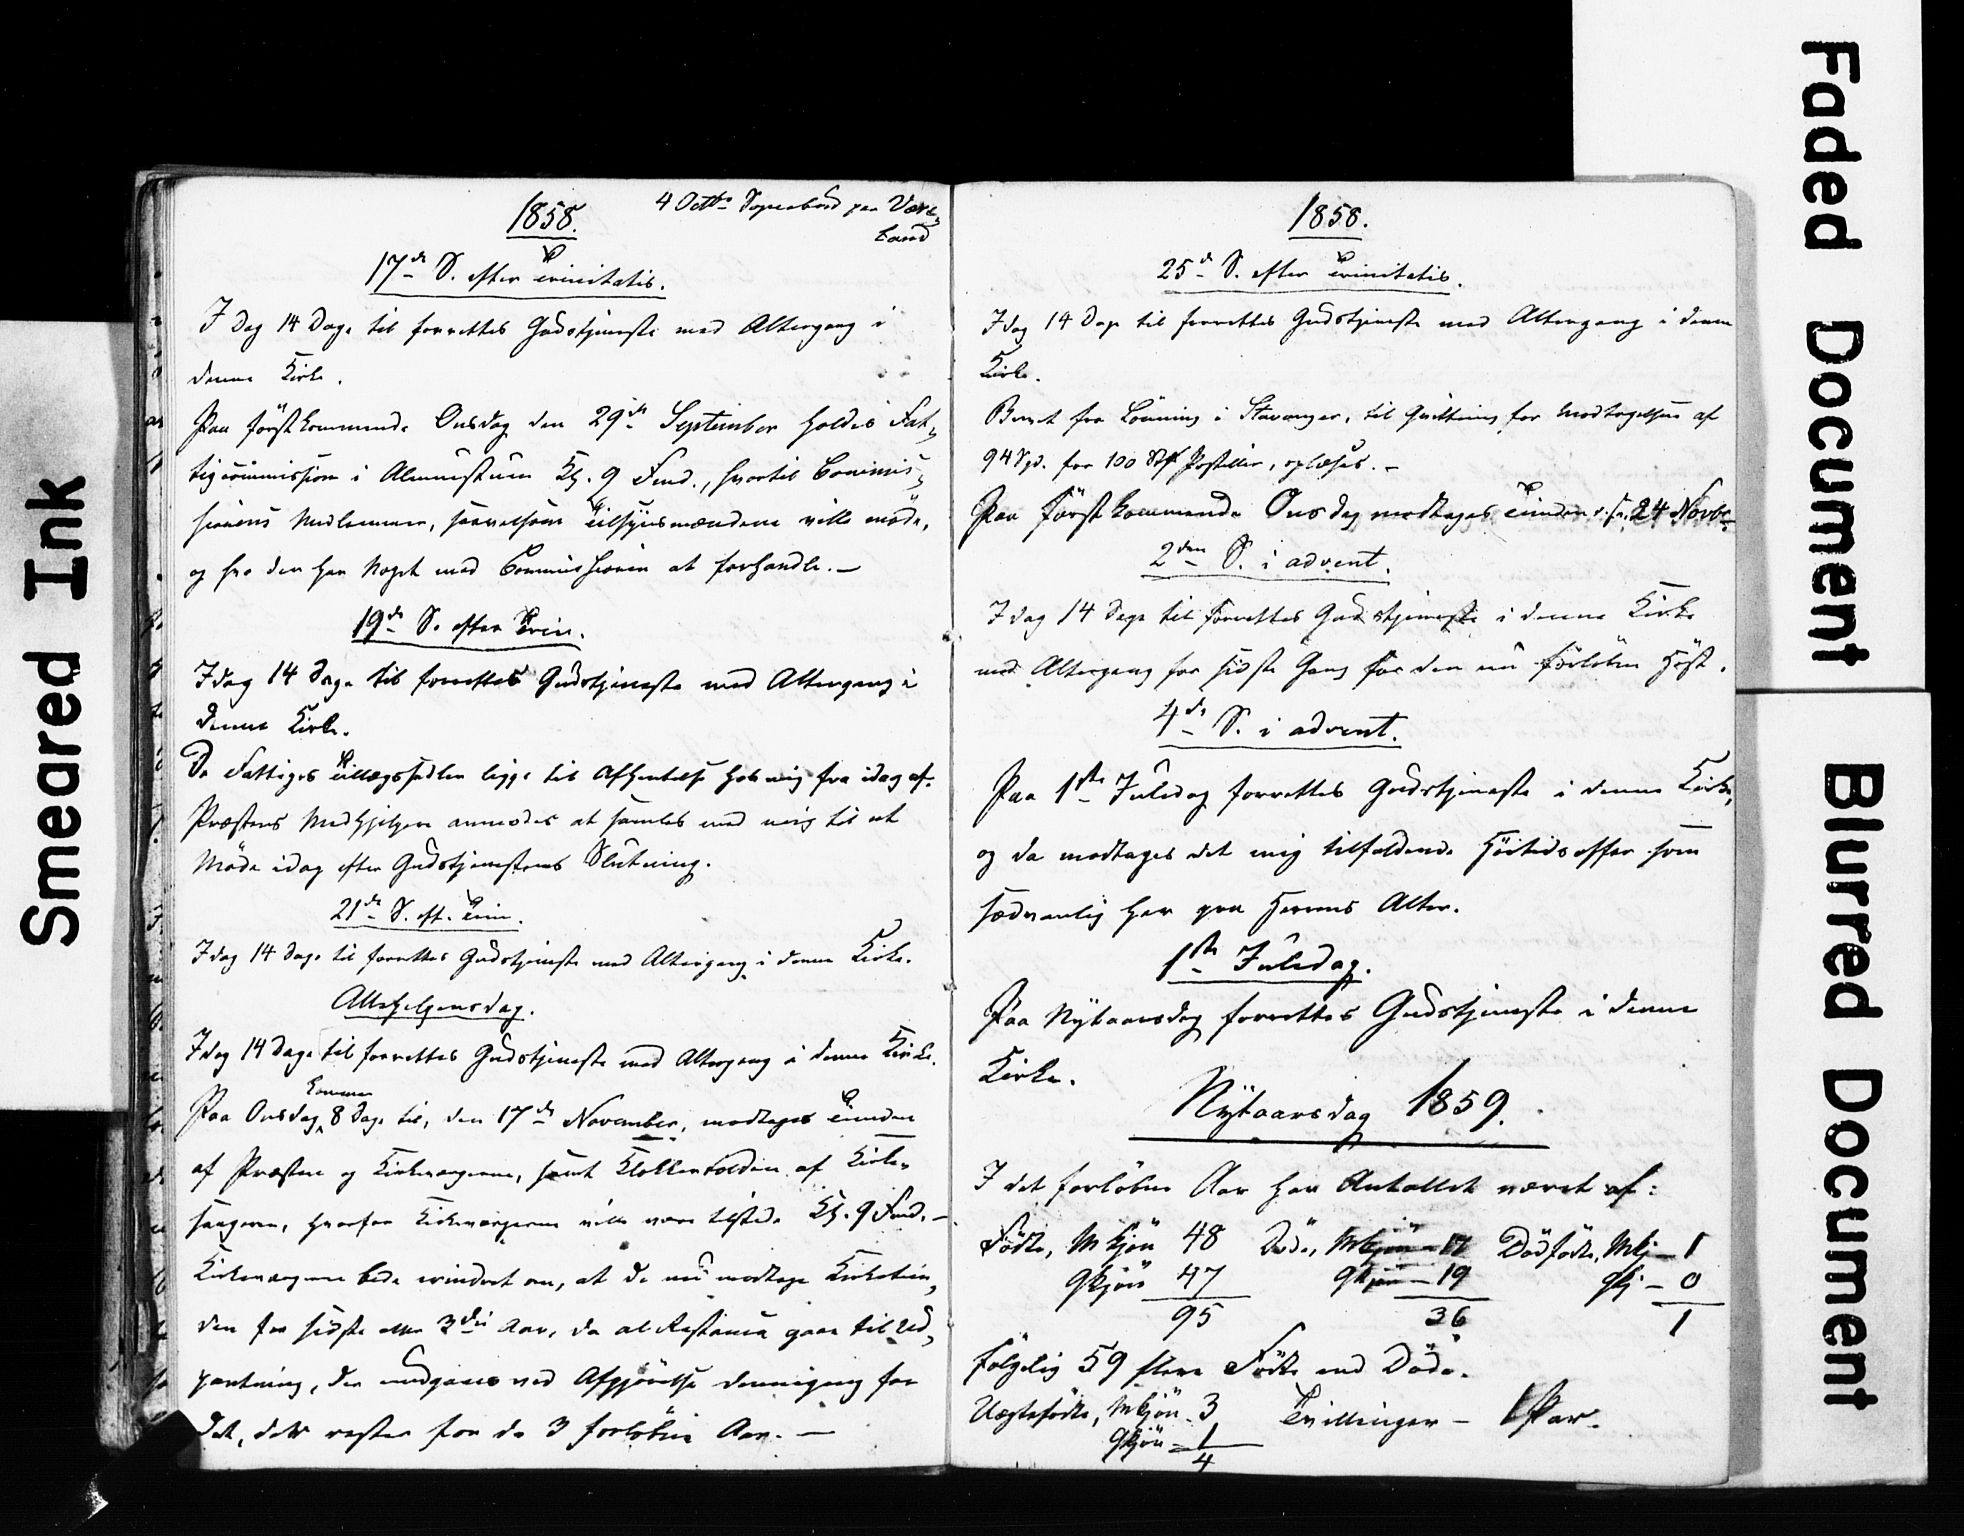 Smeared Ink
1858.
4 Octbr
17de S. efter Trinitatis.
I Dag 14 Dage til forrettes Gudstjeneste med Altergang i
denne Kirke.
Paa förstkommende Onsdag den 29de September holdes Fat-
tigcommission i Almuestuen Kl. 9 Fmd., hvortil Commis-
sionens Medlemmer, saavelsom Tilsynsmændene ville möde,
og hvo der har Noget med Commissionen at forhandle. —
19de S. efter Trin.
Idag 14 Dage til forrettes Gudstjeneste med Altergang i
denne Kirke.
De Fattiges Tillægssedler ligge til Afhentelse hos mig fra idag af.
Præstens Medhjelpere anmodes at samles med mig til et
Möde idag efter Gudstjenestens Slutning.
21de S. eft. Trin.
Idag 14 Dage til forrettes Gudstjeneste med Altergang i denne Kirke.
Allehelgensdag.
Idag 14 Dage til forrettes Gudstjeneste med Altergang i denne Kirke.
kommer
Paa Onsdag 8 Dage til, den 17de November, modtages Tienden
af Præsten og Kirkeværgerne, samt Klokkertolden af Kirke-
sangeren, hvorfor Kirkeværgerne ville være tilstede Kl. 9 Fmd. —
Kirkeværgerne bede erindret om, at de nu modtage Kirketien-
den for sidste eller 3die Aar, da al Restance gaar til Ud-
pantning, der undgaaes ved Afgjörelse dennegang for
det, der rester for de 3 forløbne Aar. —
1858.
25de S. efter Trinitatis.
Idag 14 Dage til forrettes Gudstjeneste med Altergang i denne
Kirke.
Brevet fra Lönning i Stavanger, til Qvittering for Modtagelsen af
94 Spd. for 100 Stk Postiller, oplæses. —
Paa förstkommende Onsdag modtages Tienden d. 24 Novbr
2den S. i advent.
Idag 14 Dage til forrettes Gudstjeneste i denne Kirke
med Altergang for sidste Gang for den nu forløbne Höst.
4de S. i advent.
Paa 1ste Juledag forrettes Gudstjeneste i denne Kirke,
og da modtages det mig tilfaldende Höitidsoffer som
sædvanlig her paa Herrens Alter.
1ste Juledag.
Paa Nytaarsdag forrettes Gudstjeneste i denne
Kirke.
Nytaarsdag 1859.
I det forløbne Aar har Antallet været af:
Födte, Mkjön 48 Döde, Mkjön — 17 Dödfödte, Mkj — 1
Qkjön 47 Qkjön — 19 Qkj — 0
95 36 1
fölgelig 59 flere Födte end Döde.
Uægtefödte, Mkjön 3 Tvillinger — 1 Par.
Qkjön — 1
4
Faded Document
Blurred Document